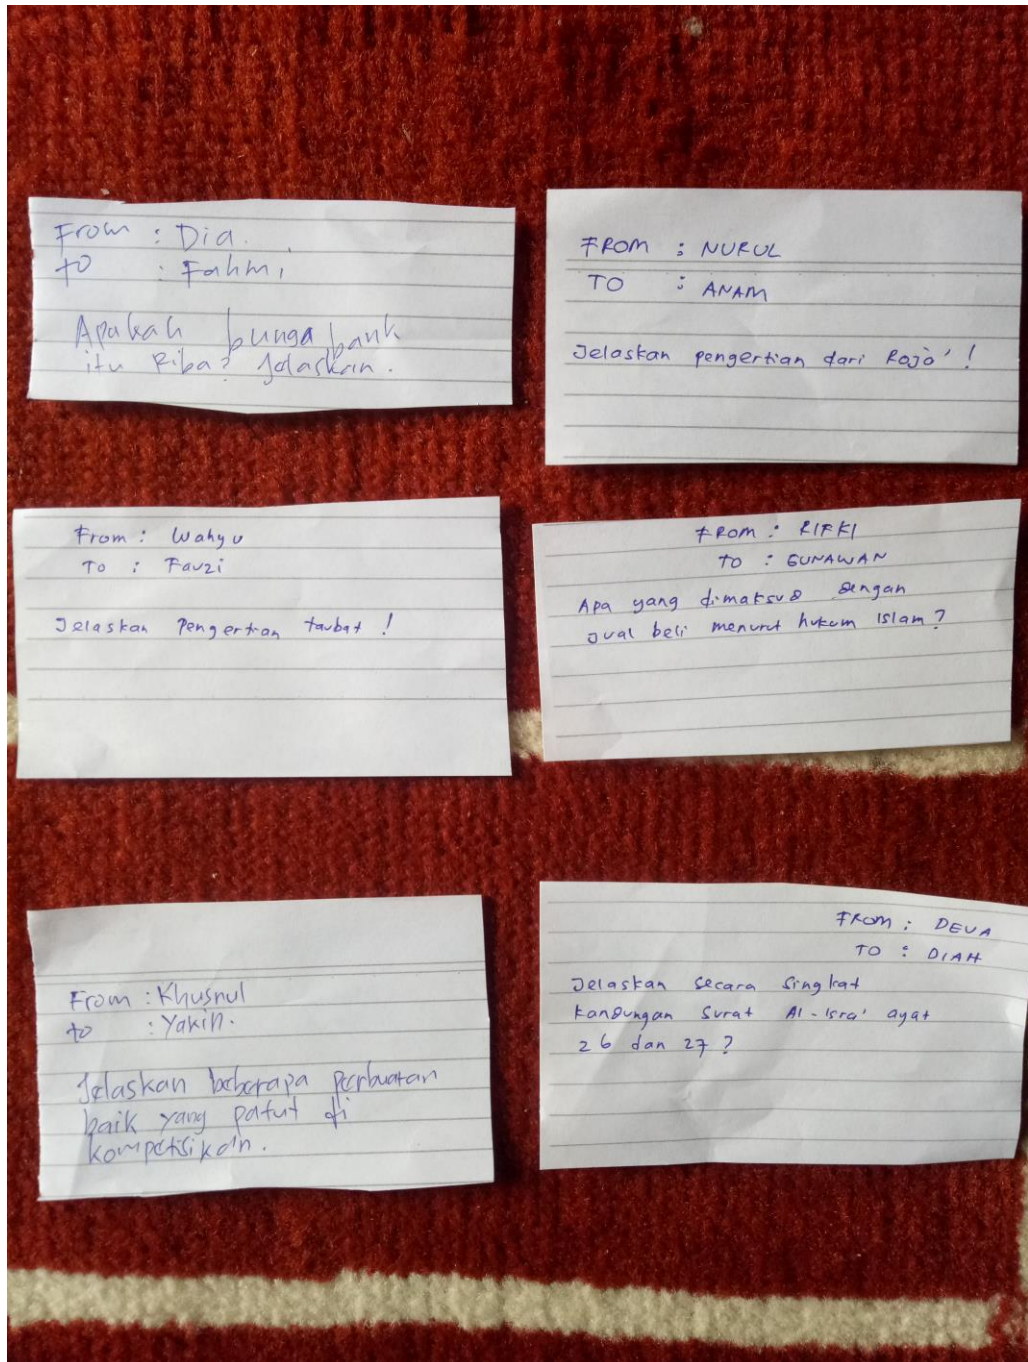 From : Dia.
to : Fahmi
Apakah bunga bank
itu Riba? Jelaskan.
FROM : NURUL
TO : ANAM
Jelaskan pengertian dari Rojo' !
From : Wahyu
To : Fauzi
Jelaskan Pengertian taubat !
FROM : RIFKI
TO : GUNAWAN
Apa yang dimaksud dengan
jual beli menurut hukum Islam?
From : Khusnul
to : Yakin.
Jelaskan beberapa perbuatan
baik yang patut di
kompetisikan.
FROM : DEVA
TO : DIAH
Jelaskan secara singkat
kandungan surat Al-Isra' ayat
26 dan 27 ?